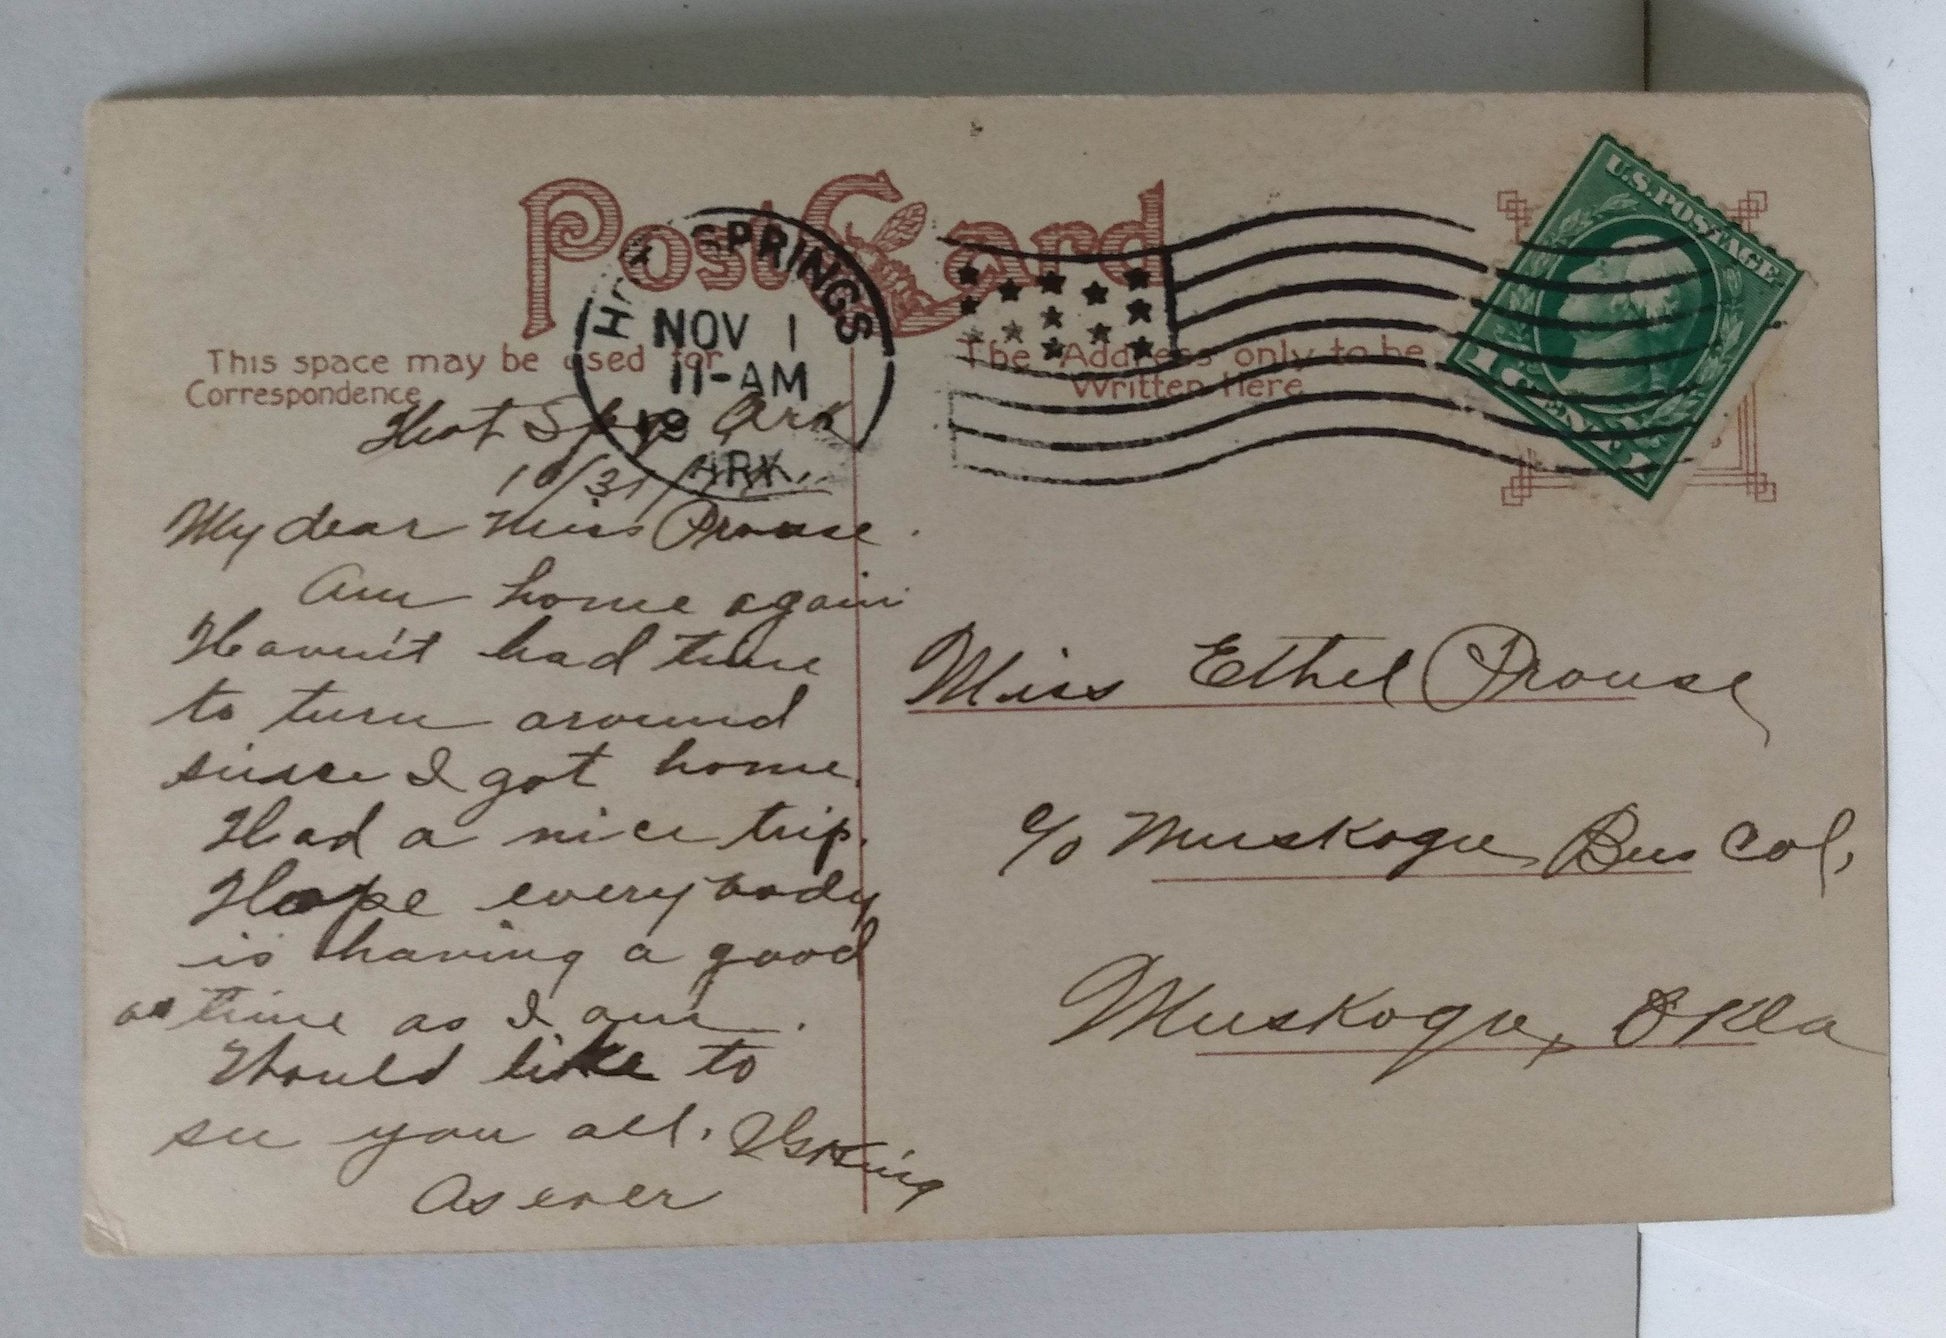 Post Card
HOT SPRINGS
NOV 1
11-AM
19
ARK.
U.S. POSTAGE
1 CENT 1
This space may be used for
Correspondence
The Address only to be
Written Here
Hot Spgs Ark
10/31/
My dear Miss Prouse.
Am home again
Haven't had time
to turn around
since I got home.
Had a nice trip.
Hope everybody
is having a good
as time as I am.
Would like to
see you all.
As ever
King
Miss Ethel Prouse
c/o Muskogee Bus Col,
Muskogee, Okla